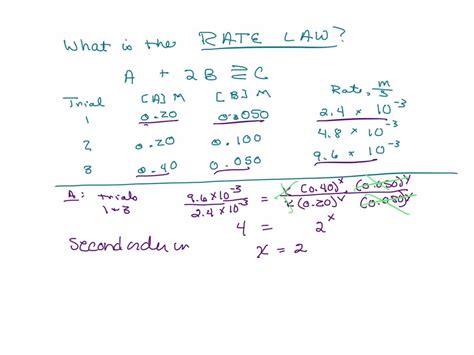 What is the RATE LAW?
A + 2B ⇌ C
Trial [A] M [B] M Rate, M/s
1 0.20 0.050 2.4 × 10⁻³
2 0.20 0.100 4.8 × 10⁻³
3 0.40 0.050 9.6 × 10⁻³
A: trials 1+3 9.6×10⁻³ / 2.4×10⁻³ = k (0.40)ˣ (0.050)ʸ / k (0.20)ˣ (0.050)ʸ
4 = 2ˣ
Second order in x = 2